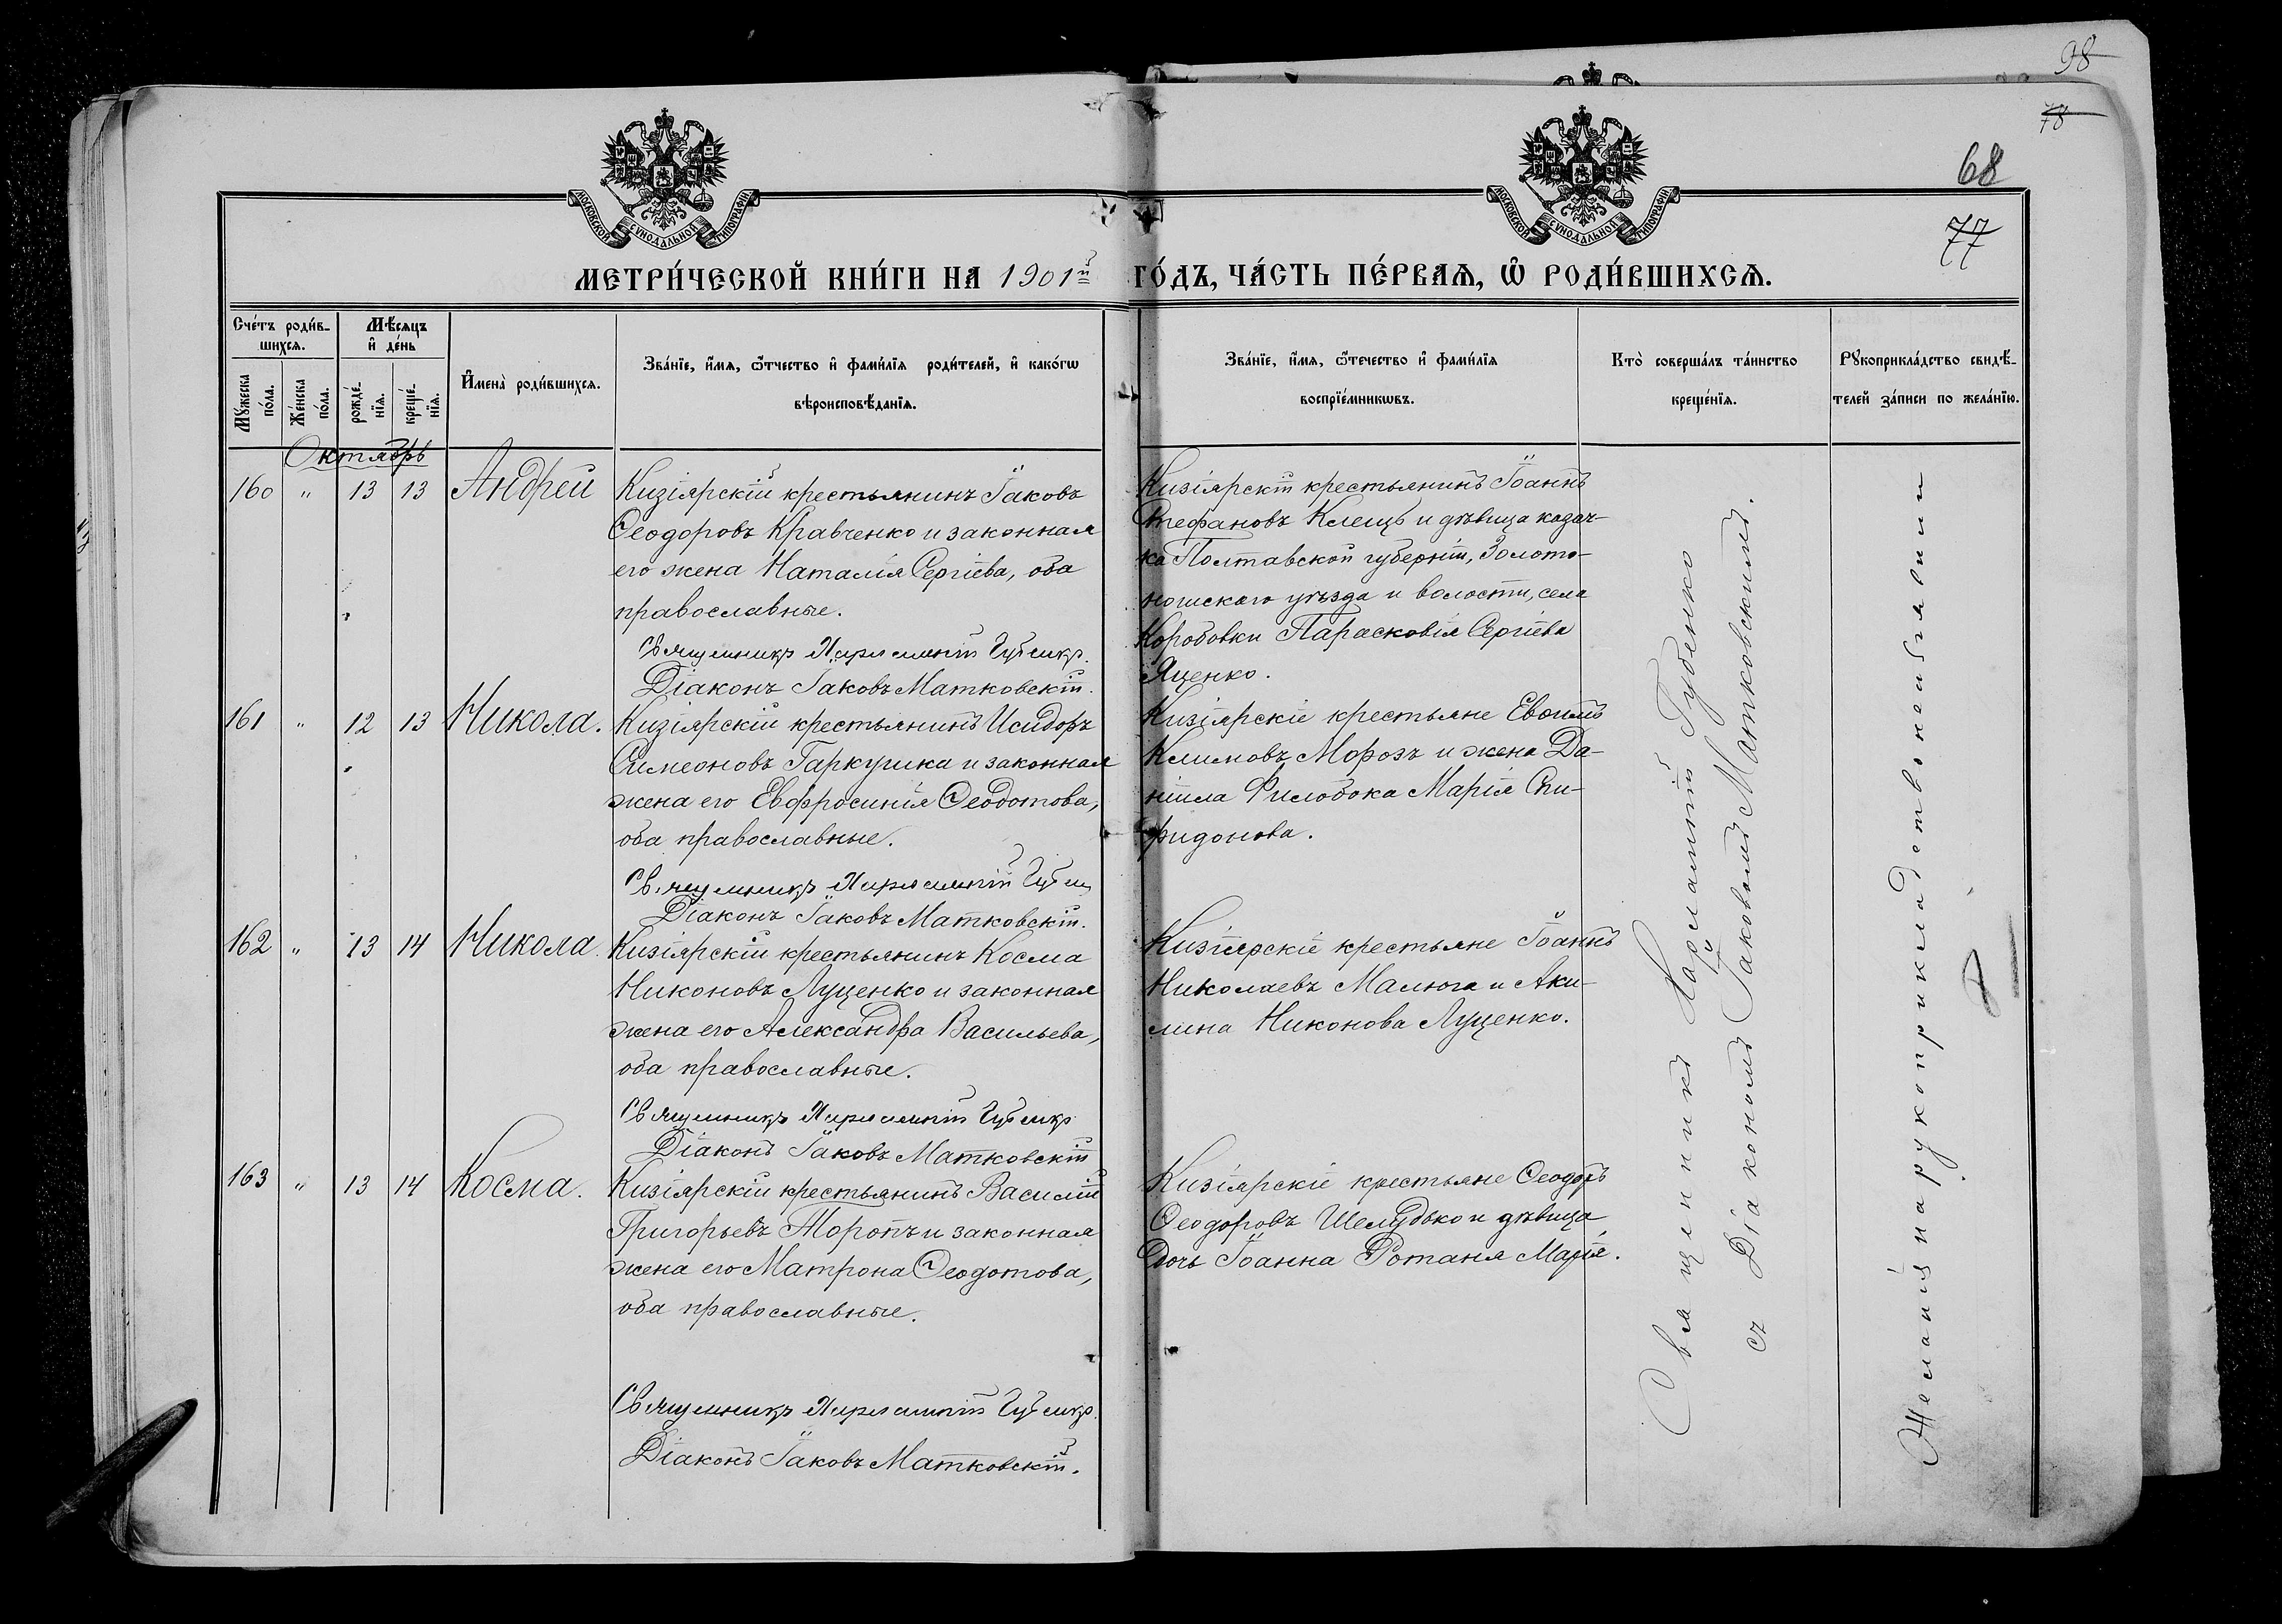 98
78
68
77
МОСКОВСКОЙ СѴНОДАЛЬНОЙ ТИПОГРАФІИ
МОСКОВСКОЙ СѴНОДАЛЬНОЙ ТИПОГРАФІИ
МЕТРИ́ЧЕСКОЙ КНИ́ГИ НА 1901й ГО́ДЪ, ЧА́СТЬ ПЕ́РВАѦ, Ѡ҆ РОДИ́ВШИХСѦ.
Сче́тъ роди́в-
шихсѧ.
Мѣ́сѧцъ
и҆ де́нь
Мꙋ́жеска
по́ла.
Же́нска
по́ла.
рожде́-
нїѧ.
креще́-
нїѧ.
И҆мена̀ роди́вшихсѧ.
Зва́нїе, и҆́мѧ, ѻ҆́тчество и҆ фами́лїѧ роди́телей, и҆ како́гѡ
вѣроисповѣ́данїѧ.
Зва́нїе, и҆́мѧ, ѻ҆те́чество и҆ фами́лїѧ
воспрїе́мникѡвъ.
Кто̀ соверша́лъ та́инство
креще́нїѧ.
Рꙋкоприкла́дство свидѣ́-
телей за́писи по жела́нїю.
Октябрь
160 " 13 13 Андрей
Кизіярскій крестьянинъ Іаковъ
Ѳеодоровъ Кравченко и законная
его жена Наталія Сергіева, оба
православные.
Священникъ Харлампій Губенко.
Діаконъ Іаковъ Матковскій.
Кизіярскій крестьянинъ Іоаннъ
Стефановъ Клещъ и дѣвица казач-
ка Полтавской губерніи, Золото-
ношскаго уѣзда и волости, села
Коробовки Парасковія Сергіева
Яценко.
161 " 12 13 Никола.
Кизіярскій крестьянинъ Исидоръ
Симеоновъ Гаркушка и законная
жена его Евфросинія Ѳеодотова,
оба православные.
Священникъ Харлампій Губен
Діаконъ Іаковъ Матковскій.
Кизіярскіе крестьяне Евѳимъ
Климовъ Морозъ и жена Да-
ніила Филобока Марія Спи-
ридонова.
162 " 13 14 Никола.
Кизіярскій крестьянинъ Косма
Никоновъ Луценко и законная
жена его Александра Васильева,
оба православные.
Священникъ Харлампій Губенко
Діаконъ Іаковъ Матковскій
Кизіярскіе крестьяне Іоаннъ
Николаевъ Малюга и Аки-
лина Никонова Луценко.
163 " 13 14 Косма.
Кизіярскій крестьянинъ Василій
Григорьевъ Моропъ и законная
жена его Матрона Ѳеодотова,
оба православные.
Священникъ Харлампій Губенко.
Діаконъ Іаковъ Матковскій.
Кизіярскіе крестьяне Ѳеодоръ
Ѳеодоровъ Шелудько и дѣвица
дочь Іоанна Ротаня Марія.
Священникъ Харлампій Губенко
съ Діакономъ Іаковомъ Матковскимъ.
Желанія на рукоприкладство не объявили